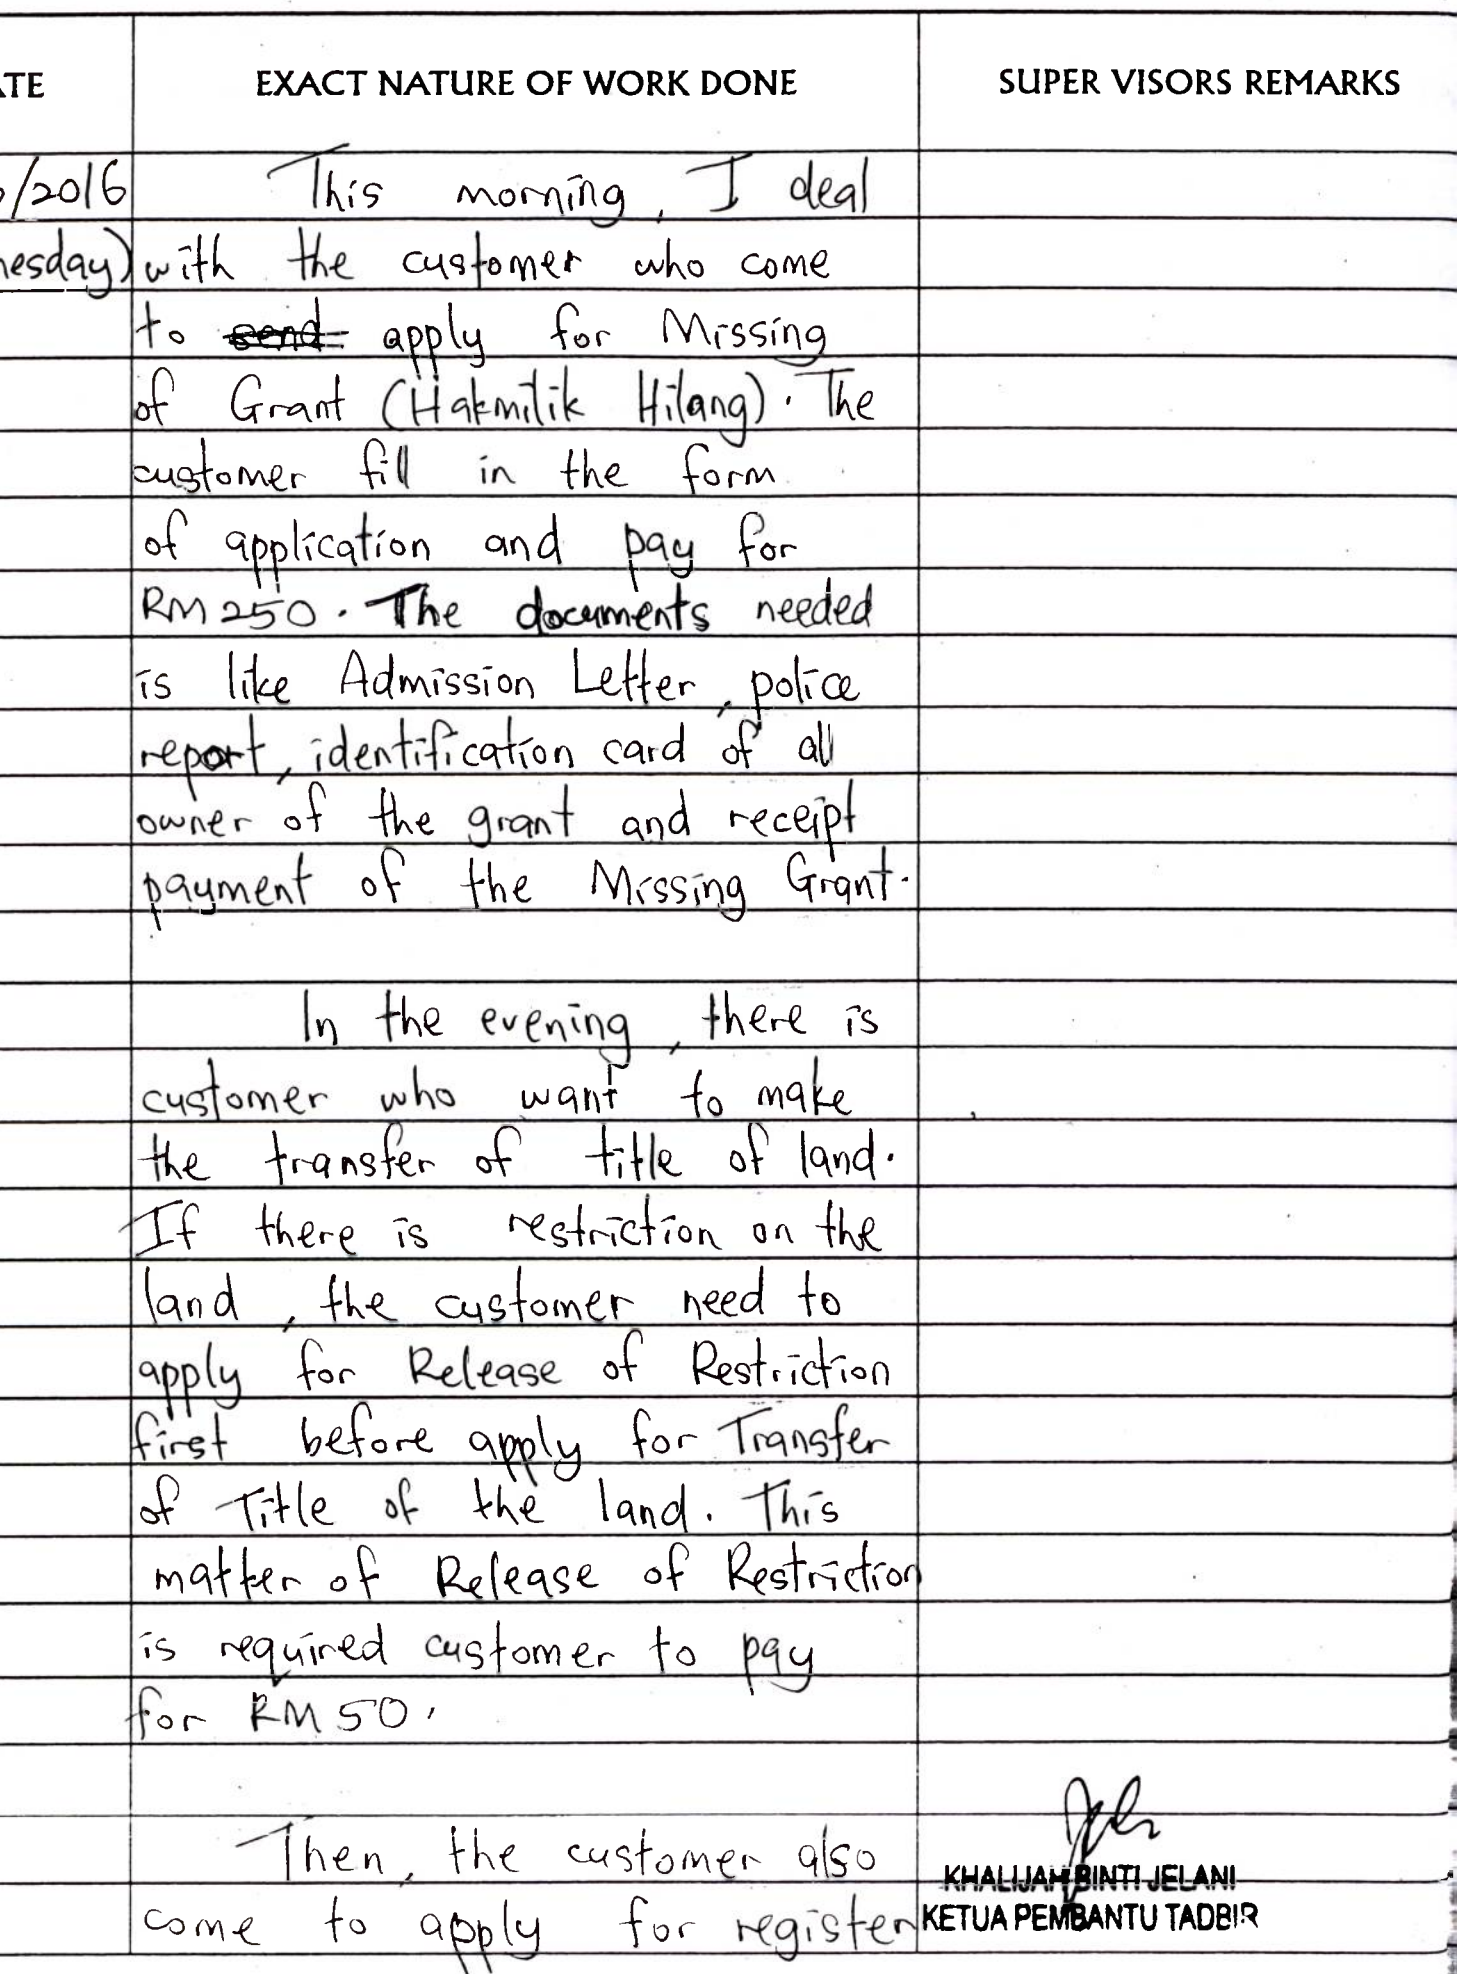 ATE EXACT NATURE OF WORK DONE SUPER VISORS REMARKS
/2016 This morning, I deal
nesday) with the customer who come
to send apply for Missing
of Grant (Hakmilik Hilang). The
customer fill in the form
of application and pay for
RM 250. The documents needed
is like Admission Letter, police
report, identification card of all
owner of the grant and receipt
payment of the Missing Grant.
In the evening, there is
customer who want to make
the transfer of title of land.
If there is restriction on the
land, the customer need to
apply for Release of Restriction
first before apply for Transfer
of Title of the land. This
matter of Release of Restriction
is required customer to pay
for RM 50.
Then, the customer also
KHALIJAH BINTI JELANI
come to apply for register
KETUA PEMBANTU TADBIR